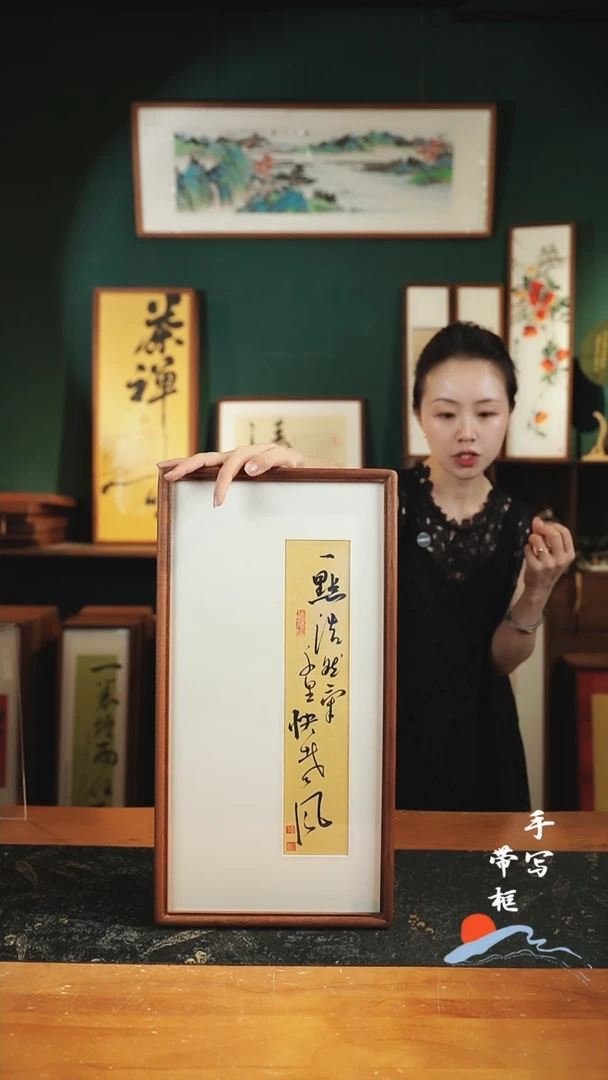 一點浩然氣
千里快哉風
茶禪
一蓑煙雨任
手写
带框